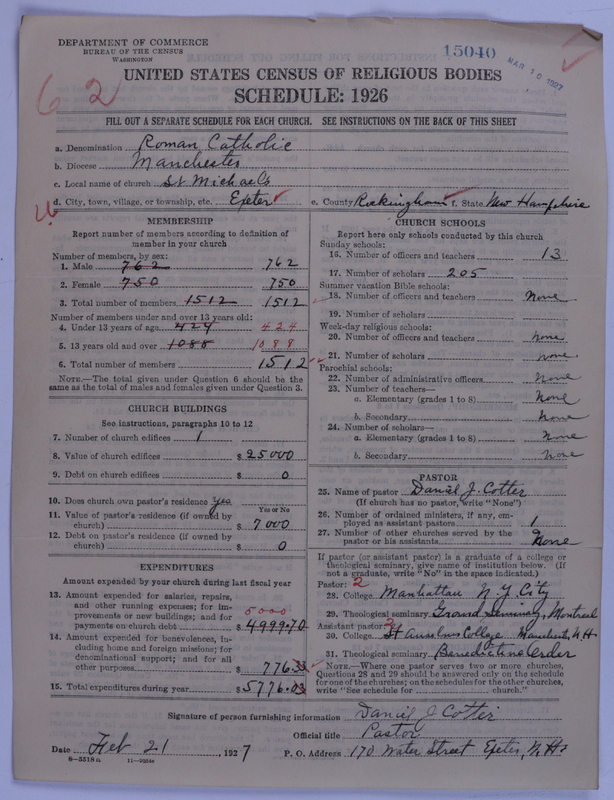 DEPARTMENT OF COMMERCE
BUREAU OF THE CENSUS
WASHINGTON
15040
MAR 10 1927
62
UNITED STATES CENSUS OF RELIGIOUS BODIES
SCHEDULE: 1926
FILL OUT A SEPARATE SCHEDULE FOR EACH CHURCH. SEE INSTRUCTIONS ON THE BACK OF THIS SHEET
a. Denomination Roman Catholic
b. Diocese Manchester
c. Local name of church St Michaels
d. City, town, village, or township, etc. Exeter e. County Rockingham f. State New Hampshire
MEMBERSHIP
Report number of members according to definition of member in your church
Number of members, by sex:
1. Male 762 762
2. Female 750 750
3. Total number of members 1512 1512
Number of members under and over 13 years old:
4. Under 13 years of age 424 424
5. 13 years old and over 1088 1088
6. Total number of members 1512
NOTE.—The total given under Question 6 should be the same as the total of males and females given under Question 3.
CHURCH BUILDINGS
See instructions, paragraphs 10 to 12
7. Number of church edifices 1
8. Value of church edifices $25000
9. Debt on church edifices $ 0
10. Does church own pastor's residence Yes
Yes or No
11. Value of pastor's residence (if owned by church) $ 7000
12. Debt on pastor's residence (if owned by church) $ 0
EXPENDITURES
Amount expended by your church during last fiscal year
13. Amount expended for salaries, repairs, and other running expenses; for improvements or new buildings; and for payments on church debt $4999.70
5000
14. Amount expended for benevolences, including home and foreign missions; for denominational support; and for all other purposes $ 776.33
15. Total expenditures during year $5776.03
CHURCH SCHOOLS
Report here only schools conducted by this church
Sunday schools:
16. Number of officers and teachers 13
17. Number of scholars 205
Summer vacation Bible schools:
18. Number of officers and teachers None
19. Number of scholars
Week-day religious schools:
20. Number of officers and teachers None
21. Number of scholars None
Parochial schools:
22. Number of administrative officers None
23. Number of teachers—
a. Elementary (grades 1 to 8) None
b. Secondary None
24. Number of scholars—
a. Elementary (grades 1 to 8) None
b. Secondary None
PASTOR
25. Name of pastor Daniel J. Cotter
(If church has no pastor, write "None")
26. Number of ordained ministers, if any, employed as assistant pastors 1
27. Number of other churches served by the pastor or his assistants None
If pastor (or assistant pastor) is a graduate of a college or theological seminary, give name of institution below. (If not a graduate, write "No" in the space indicated.)
Pastor: 2
28. College Manhattan N.Y. City
29. Theological seminary Grand Seminary, Montreal
Assistant pastor: 2
30. College St Anselms College Manchester N.H.
31. Theological seminary Benedictine Order
NOTE.—Where one pastor serves two or more churches, Questions 28 and 29 should be answered only on the schedule for one of the churches; on the schedules for the other churches, write "See schedule for church."
Signature of person furnishing information Daniel J Cotter
Official title Pastor
Date Feb 21 1927 P. O. Address 170 Water Street Exeter, N.H.
8—5518 a 11—9964a